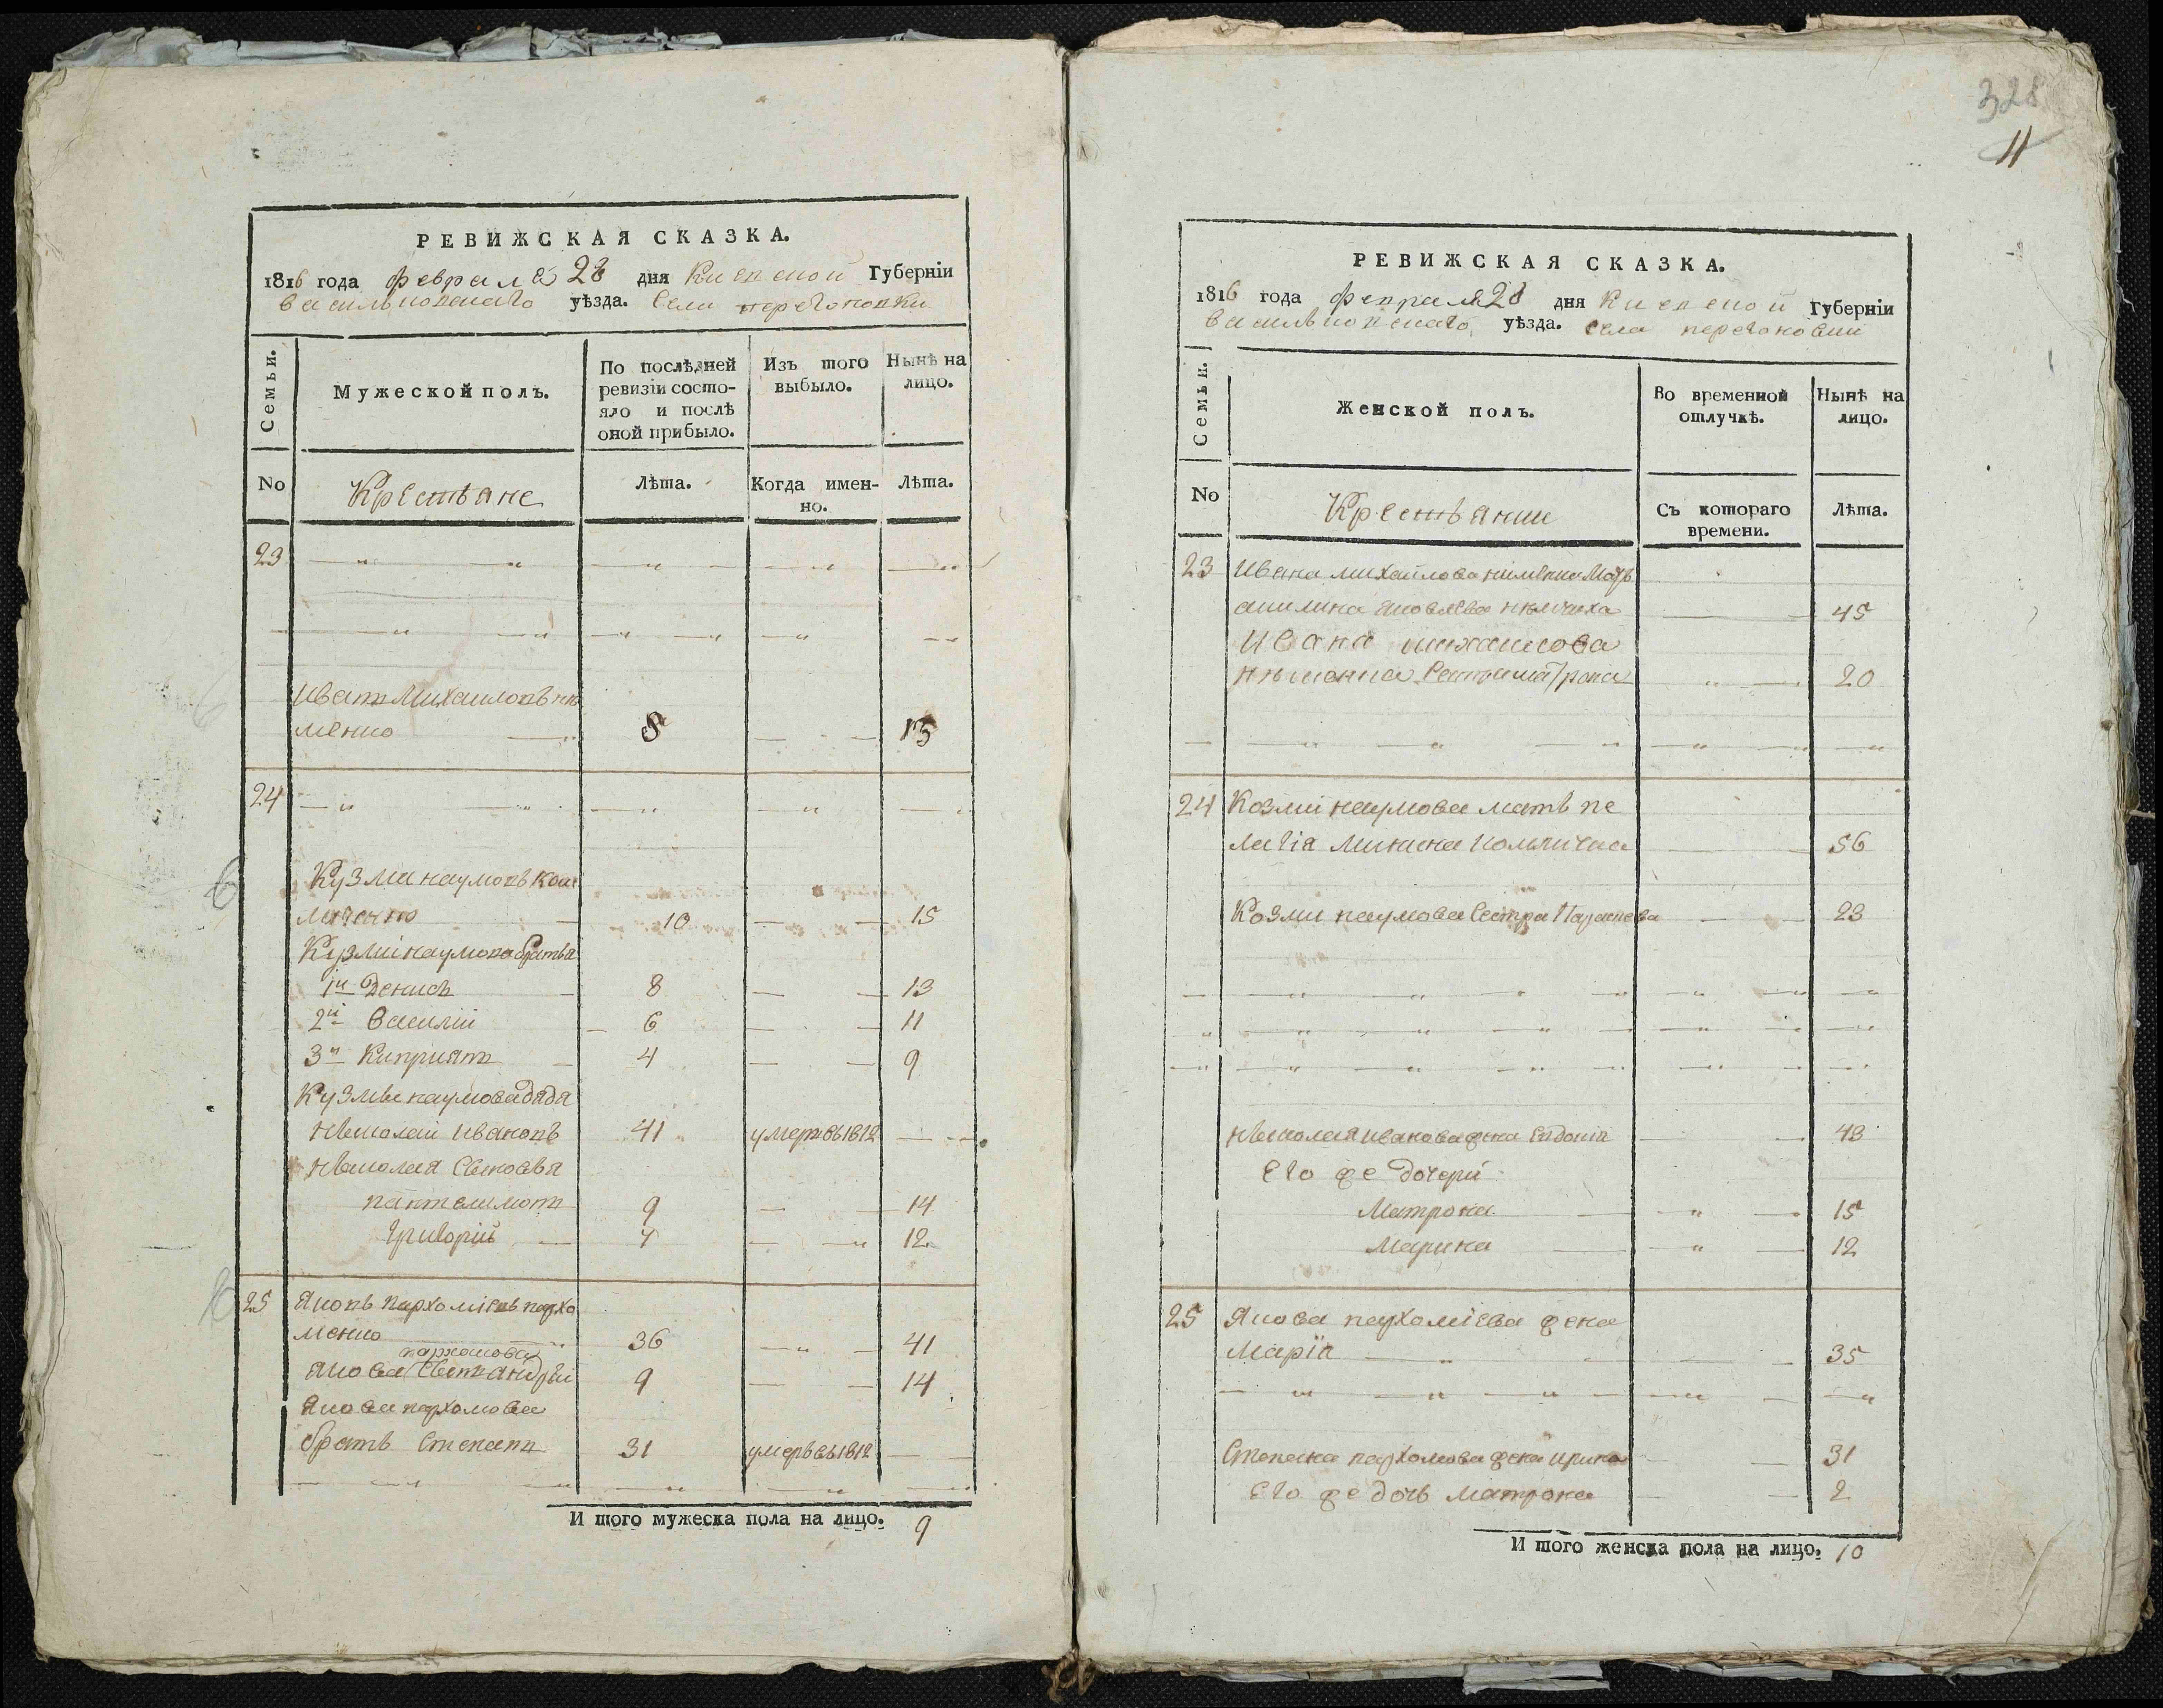 РЕВИЖСКАЯ СКАЗКА.
1816 года февраля 28 дня Киевской Губерніи
васильковскаго уѣзда. Села переґоновки
Семьи.
Мужеской полъ.
По послѣдней ревизіи состояло и послѣ оной прибыло.
Изъ того выбыло.
Нынѣ на лицо.
No
Крестьяне
Лѣта.
Когда именно.
Лѣта.
23
Иванъ Михаиловъ нѣ
менко 8 13
24
Кузма наумовъ
10 15
Кузми наумова братья
1й Денисъ 8 13
2й Василій 6 11
3й Киприянъ 4 9
Кузмы наумова дядя
Николай Ивановъ 41 умеръ въ 1812
Николая Сыновья
пантелимонъ 9 14
Григорій 7 12
25 Яковъ Пархоміевъ пархо
менко 36 41
пархомова
Якова Сынъ андрій 9 14
Якова пархомова
братъ Степанъ 31 умеръ въ 1812
И того мужеска пола на лицо. 9
328
11
РЕВИЖСКАЯ СКАЗКА.
1816 года февраля 28 дня Киевской Губерніи
васильковскаго уѣзда. села
Семьи.
Женской полъ.
Во временной отлучкѣ.
Нынѣ на лицо.
No
Крестьянки
Съ котораго времени.
Лѣта.
23 Ивана михайлова нименка Мать
акилина яковлева 45
Ивана михаилова
нѣменка Сестра матрона 20
24 Козми наумова мать пе
лагія 56
Козми наумова Сестра Параскева 23
Николая иванова жена Евдокія 43
Его же дочери
Матрона 15
Марина 12
25 Якова пархоміева жена
Марія 35
Степана пархомова жена ирина 31
Его же дочь Матрона 2
И того женска пола на лицо. 10